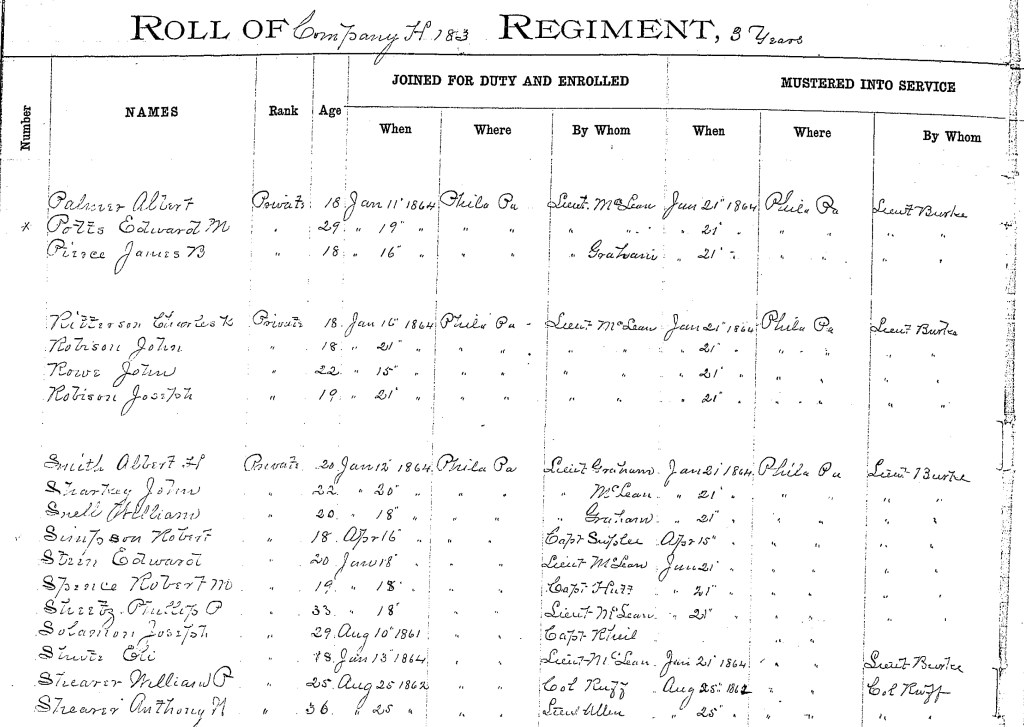 ROLL OF Company H 183 REGIMENT, 3 Years
JOINED FOR DUTY AND ENROLLED MUSTERED INTO SERVICE
Number NAMES Rank Age When Where By Whom When Where By Whom
Palmer Albert Private 18 Jan 11" 1864 Phila Pa Lieut McLean Jan 21" 1864 Phila Pa Lieut Burke
* Potts Edward M " 29 " 19" " " " " " " 21" " " " " "
Pierce James B " 18 " 16" " " " " Graham " 21" " " " " "
Ritterson Charles K Private 18 Jan 16" 1864 Phila Pa Lieut McLean Jan 21" 1864 Phila Pa Lieut Burke
Robison John " 18 " 21" " " " " " " 21" " " " " "
Rowe John " 22 " 15" " " " " " " 21" " " " " "
Robison Joseph " 19 " 21" " " " " " " 21" " " " " "
Smith Albert H Private 20 Jan 12" 1864 Phila Pa Lieut Graham Jan 21" 1864 Phila Pa Lieut Burke
Sharkey John " 22 " 20" " " " " McLean " 21" " " " " "
Snell William " 20 " 18" " " " " Graham " 21" " " " " "
Simpson Robert " 18 Apr 16 " " " Capt Suplee Apr 15" " " " "
Stein Edward " 20 Jan 18" " " Lieut McLean Jan 21" " " " "
Spence Robert M " 19 " 18" " " Capt " 21" " " " "
Sheetz Phillip P " 33 " 18" " " Lieut McLean " 21" " " " "
Solamon Joseph " 29 Aug 10" 1861 " " Capt " "
Eli " 18 Jan 13" 1864 " " Lieut McLean Jan 21" 1864 " " Lieut Burke
Shearer William P " 25 Aug 25 1862 " " Col Ruff Aug 25" 1862 " " Col Ruff
Shearer Anthony N " 36 " 25 " " " Lieut Allen " 25" " " " " "